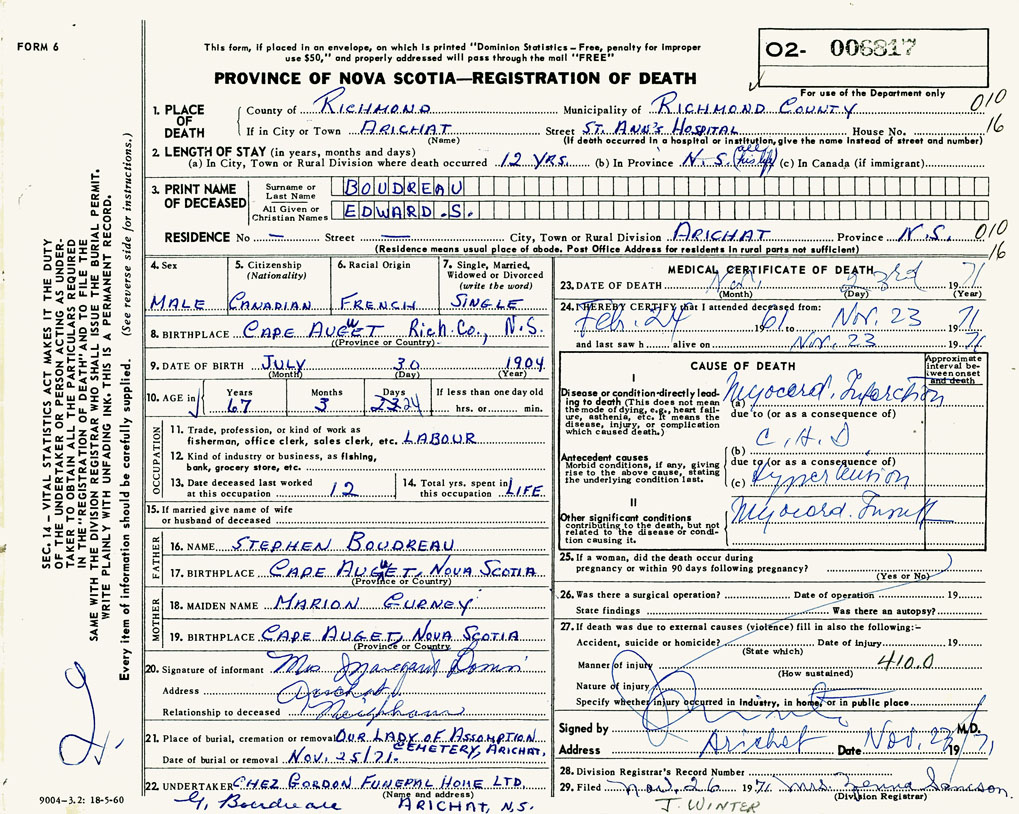 FORM 6
This form, if placed in an envelope, on which is printed "Dominion Statistics – Free, penalty for improper
use $50," and properly addressed will pass through the mail "FREE"
O2- 006817
PROVINCE OF NOVA SCOTIA—REGISTRATION OF DEATH
For use of the Department only
010
16
1. PLACE OF DEATH
County of RICHMOND Municipality of RICHMOND COUNTY
If in City or Town ARICHAT Street ST. ANN'S HOSPITAL House No.
(Name) (If death occurred in a hospital or institution, give the name instead of street and number)
2. LENGTH OF STAY (in years, months and days)
(a) In City, Town or Rural Division where death occurred 12 YRS. (b) In Province N.S. (all his life) (c) In Canada (if immigrant)
3. PRINT NAME OF DECEASED
Surname or Last Name BOUDREAU
All Given or Christian Names EDWARD.S.
RESIDENCE No — Street — City, Town or Rural Division ARICHAT Province N.S.
010
16
(Residence means usual place of abode. Post Office Address for residents in rural parts not sufficient)
4. Sex
MALE
5. Citizenship (Nationality)
CANADIAN
6. Racial Origin
FRENCH
7. Single, Married, Widowed or Divorced (write the word)
SINGLE
8. BIRTHPLACE CAPE AUGET Rich. Co., N.S.
(Province or Country)
9. DATE OF BIRTH JULY 30 1904
(Month) (Day) (Year)
10. AGE in Years Months Days If less than one day old
67 3 23 24 hrs. or min.
OCCUPATION
11. Trade, profession, or kind of work as
fisherman, office clerk, sales clerk, etc. LABOUR
12. Kind of industry or business, as fishing,
bank, grocery store, etc.
13. Date deceased last worked at this occupation 12
14. Total yrs. spent in this occupation LIFE
15. If married give name of wife
or husband of deceased
FATHER
16. NAME STEPHEN BOUDREAU
17. BIRTHPLACE CAPE AUGET, NOVA SCOTIA
(Province or Country)
MOTHER
18. MAIDEN NAME MARION GURNEY
19. BIRTHPLACE CAPE AUGET, NOVA SCOTIA
(Province or Country)
20. Signature of informant Mrs. Margaret
Address Arichat
Relationship to deceased
21. Place of burial, cremation or removal OUR LADY OF ASSOMPTION
CEMETERY, ARICHAT,
Date of burial or removal NOV. 25/71.
22. UNDERTAKER CHEZ GORDON FUNERAL HOME LTD.
(Name and address)
G. Boudreau ARICHAT, N.S.
MEDICAL CERTIFICATE OF DEATH
23. DATE OF DEATH Nov. 23rd 1971
(Month) (Day) (Year)
24. I HEREBY CERTIFY that I attended deceased from:
Feb. 24 1961 to Nov. 23 1971
and last saw h alive on Nov. 23 1971
CAUSE OF DEATH
Approximate interval between onset and death
I
Disease or condition directly leading to death (This does not mean the mode of dying, e.g., heart failure, asthenia, etc. It means the disease, injury, or complication which caused death.)
(a) Myocard. Infarction
due to (or as a consequence of)
(b) C.H.D
due to (or as a consequence of)
Antecedent causes
Morbid conditions, if any, giving rise to the above cause, stating the underlying condition last.
(c) Hypertension
II
Other significant conditions contributing to the death, but not related to the disease or condition causing it.
Myocard. Insuff
25. If a woman, did the death occur during
pregnancy or within 90 days following pregnancy?
(Yes or No)
26. Was there a surgical operation? Date of operation 19
State findings Was there an autopsy?
27. If death was due to external causes (violence) fill in also the following:–
Accident, suicide or homicide? Date of injury 19
(State which)
Manner of injury 410.0
(How sustained)
Nature of injury
Specify whether injury occurred in industry, in home, or in public place
Signed by M.D.
Address Arichat Date Nov. 23 1971
28. Division Registrar's Record Number
29. Filed Nov. 26 1971 Mrs. Zenna Samson.
(Division Registrar)
J. WINTER
SEC. 14 – VITAL STATISTICS ACT MAKES IT THE DUTY
OF THE UNDERTAKER OR PERSON ACTING AS UNDER-
TAKER TO OBTAIN ALL THE PARTICULARS REQUIRED
IN THE "REGISTRATION OF DEATH" AND TO FILE THE
SAME WITH THE DIVISION REGISTRAR WHO SHALL ISSUE THE BURIAL PERMIT.
WRITE PLAINLY WITH UNFADING INK. THIS IS A PERMANENT RECORD.
Every item of information should be carefully supplied. (See reverse side for instructions.)
9004–3.2: 18-5-60